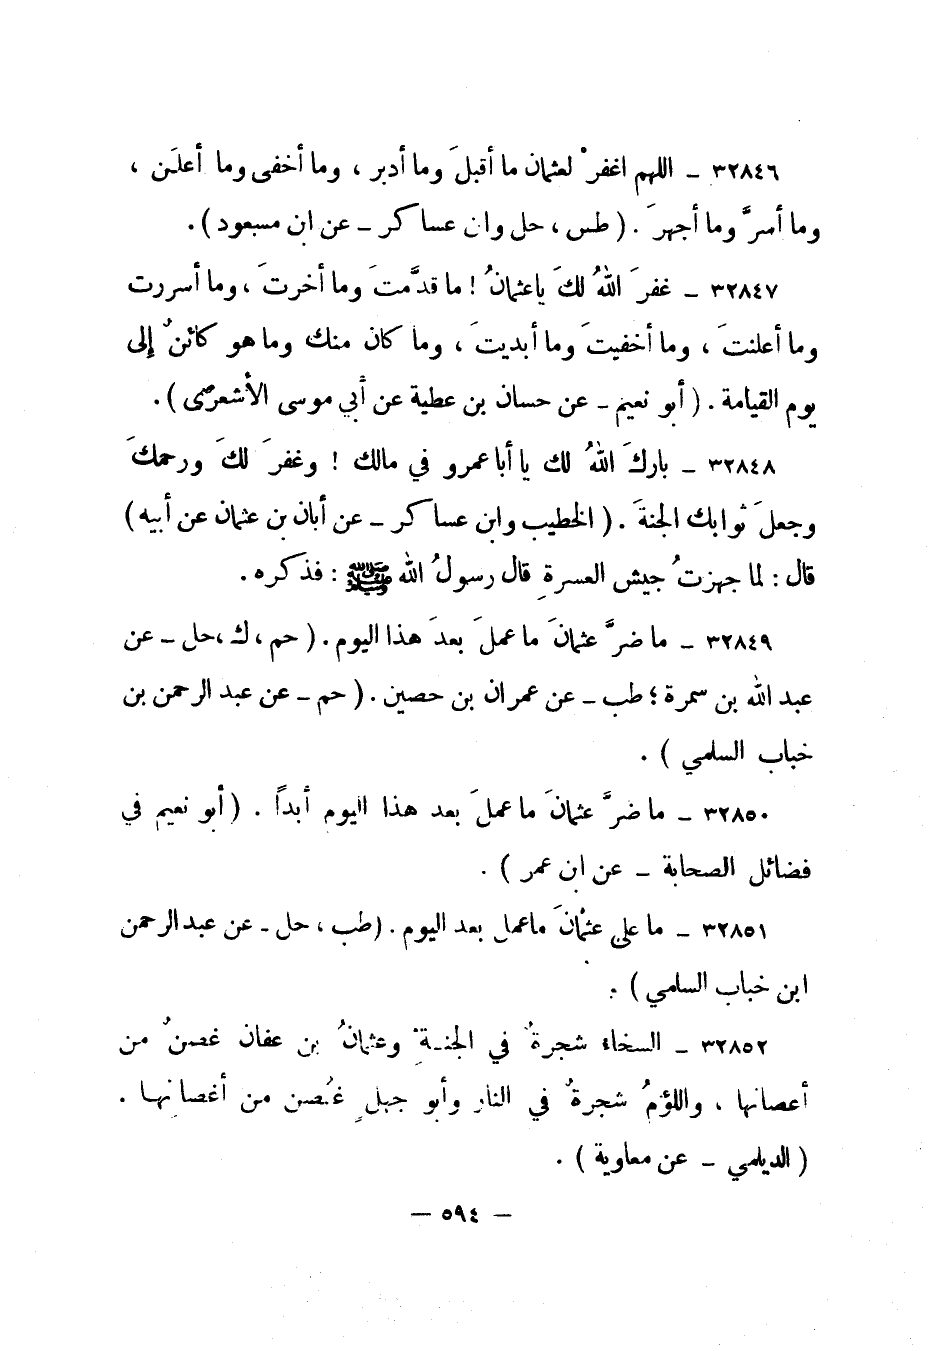 ٣٢٨٤٦ ـ اللهم اغفرْ لعثمان ما أقبلَ وما أدبر ، وما أخفى وما أعلَن ،
وما أسرَّ وما أجهرَ . ( طس ، حل وابن عساكر ـ عن ابن مسعود ) .
٣٢٨٤٧ ـ غفرَ اللهُ لكَ ياعثمانُ ! ما قدَّمتَ وما أخرتَ ، وما أسررت
وما أعلنتَ ، وما أخفيتَ وما أبديتَ ، وما كان منك وما هو كائنٌ إلى
يوم القيامة . ( أبو نعيم ـ عن حسان بن عطية عن أبي موسى الأشعرى ) .
٣٢٨٤٨ ـ باركَ اللهُ لك يا أبا عمرو في مالك ! وغفرَ لكَ ورحمكَ
وجعلَ ثوابك الجنةَ . ( الخطيب وابن عساكر ـ عن أبان بن عثمان عن أبيه )
قال : لما جهزتُ جيش العسرةِ قال رسولُ الله ﷺ : فذكره .
٣٢٨٤٩ ـ ما ضرَّ عثمانَ ما عملَ بعدَ هذا اليوم . ( حم ، ك ، حل ـ عن
عبد الله بن سمرة ؛ طب ـ عن عمران بن حصين . ( حم ـ عن عبد الرحمن بن
خباب السلمي ) .
٣٢٨٥٠ ـ ما ضرَّ عثمانَ ما عملَ بعد هذا اليوم أبداً . ( أبو نعيم في
فضائل الصحابة ـ عن ابن عمر ) .
٣٢٨٥١ ـ ما على عثمانَ ماعمل بعد اليوم . (طب ، حل ـ عن عبد الرحمن
ابن خباب السلمي ) .
٣٢٨٥٢ ـ السخاء شجرةٌ في الجنـةِ وعثمانُ بن عفان غصنٌ من
أعصانها ، واللؤمُ شجرةٌ في النار وأبو جهلٍ غُصن من أغصانهـا .
( الديلمي ـ عن معاوية ) .
— ٥٩٤ —